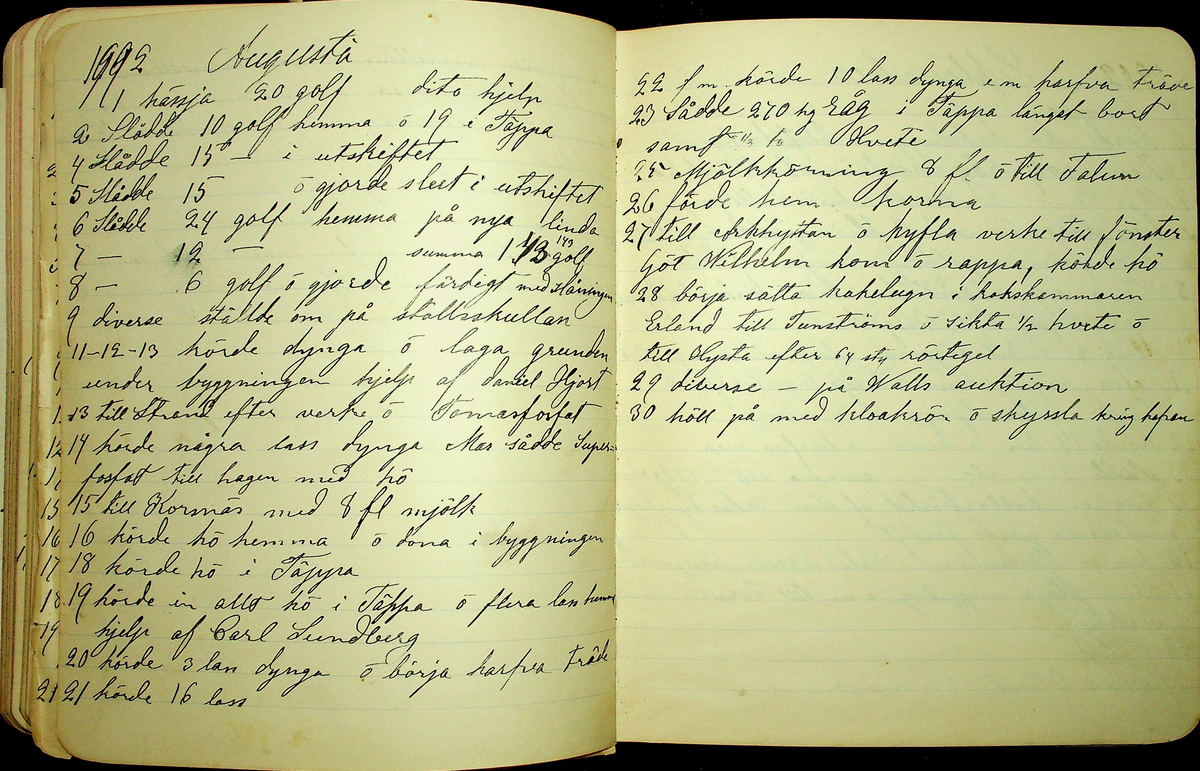 1992 Augusti
1 hässja 20 golf dito hjelp
2 Slådde 10 golf hemma ö 19 i Täppa
4 Slådde 15 — i utskiftet
5 Slådde 15 ö gjorde slut i utskiftet
6 Slådde 24 golf hemma på nya linda
7 — 12 — summa 143 golf
8 — 6 golf ö gjorde färdigt med slåningen
9 diverse ställde om på stallsskullan
11-12-13 körde dynga ö laga grunden
under byggningen hjelp af Daniel Hjort
13 till Strand efter verke ö Tomasfosfat
14 körde några lass dynga Mas sådde Super-
fosfat till hagen med hö
15 till Kornäs med 8 fl mjölk
16 körde hö hemma ö dona i byggningen
18 körde hö i Täppa
19 körde in allt hö i Täppa ö flera lass hemma
hjelp af Carl Sundberg
20 körde 3 lan dynga ö börja harfva träde
21 körde 16 lass
22 f m körde 10 lass dynga e m harfva träde
23 Sådde 270 kg Råg i Täppa längst bort
samt 1/2 Hvete
25 Mjölkkörning 8 fl ö till Falun
26 förde hem korna
27 till ö kyfla verke till fönster
Göt Wilhelm kom ö rappa, körde hö
28 börja sätta kakelugn i kokskammaren
Erland till Tunströms ö sikta 1/2 hvete ö
till Hysta efter 64 sty rörtegel
29 diverse — på Walls auktion
30 höll på med kloakrör ö skyssla kring hafran